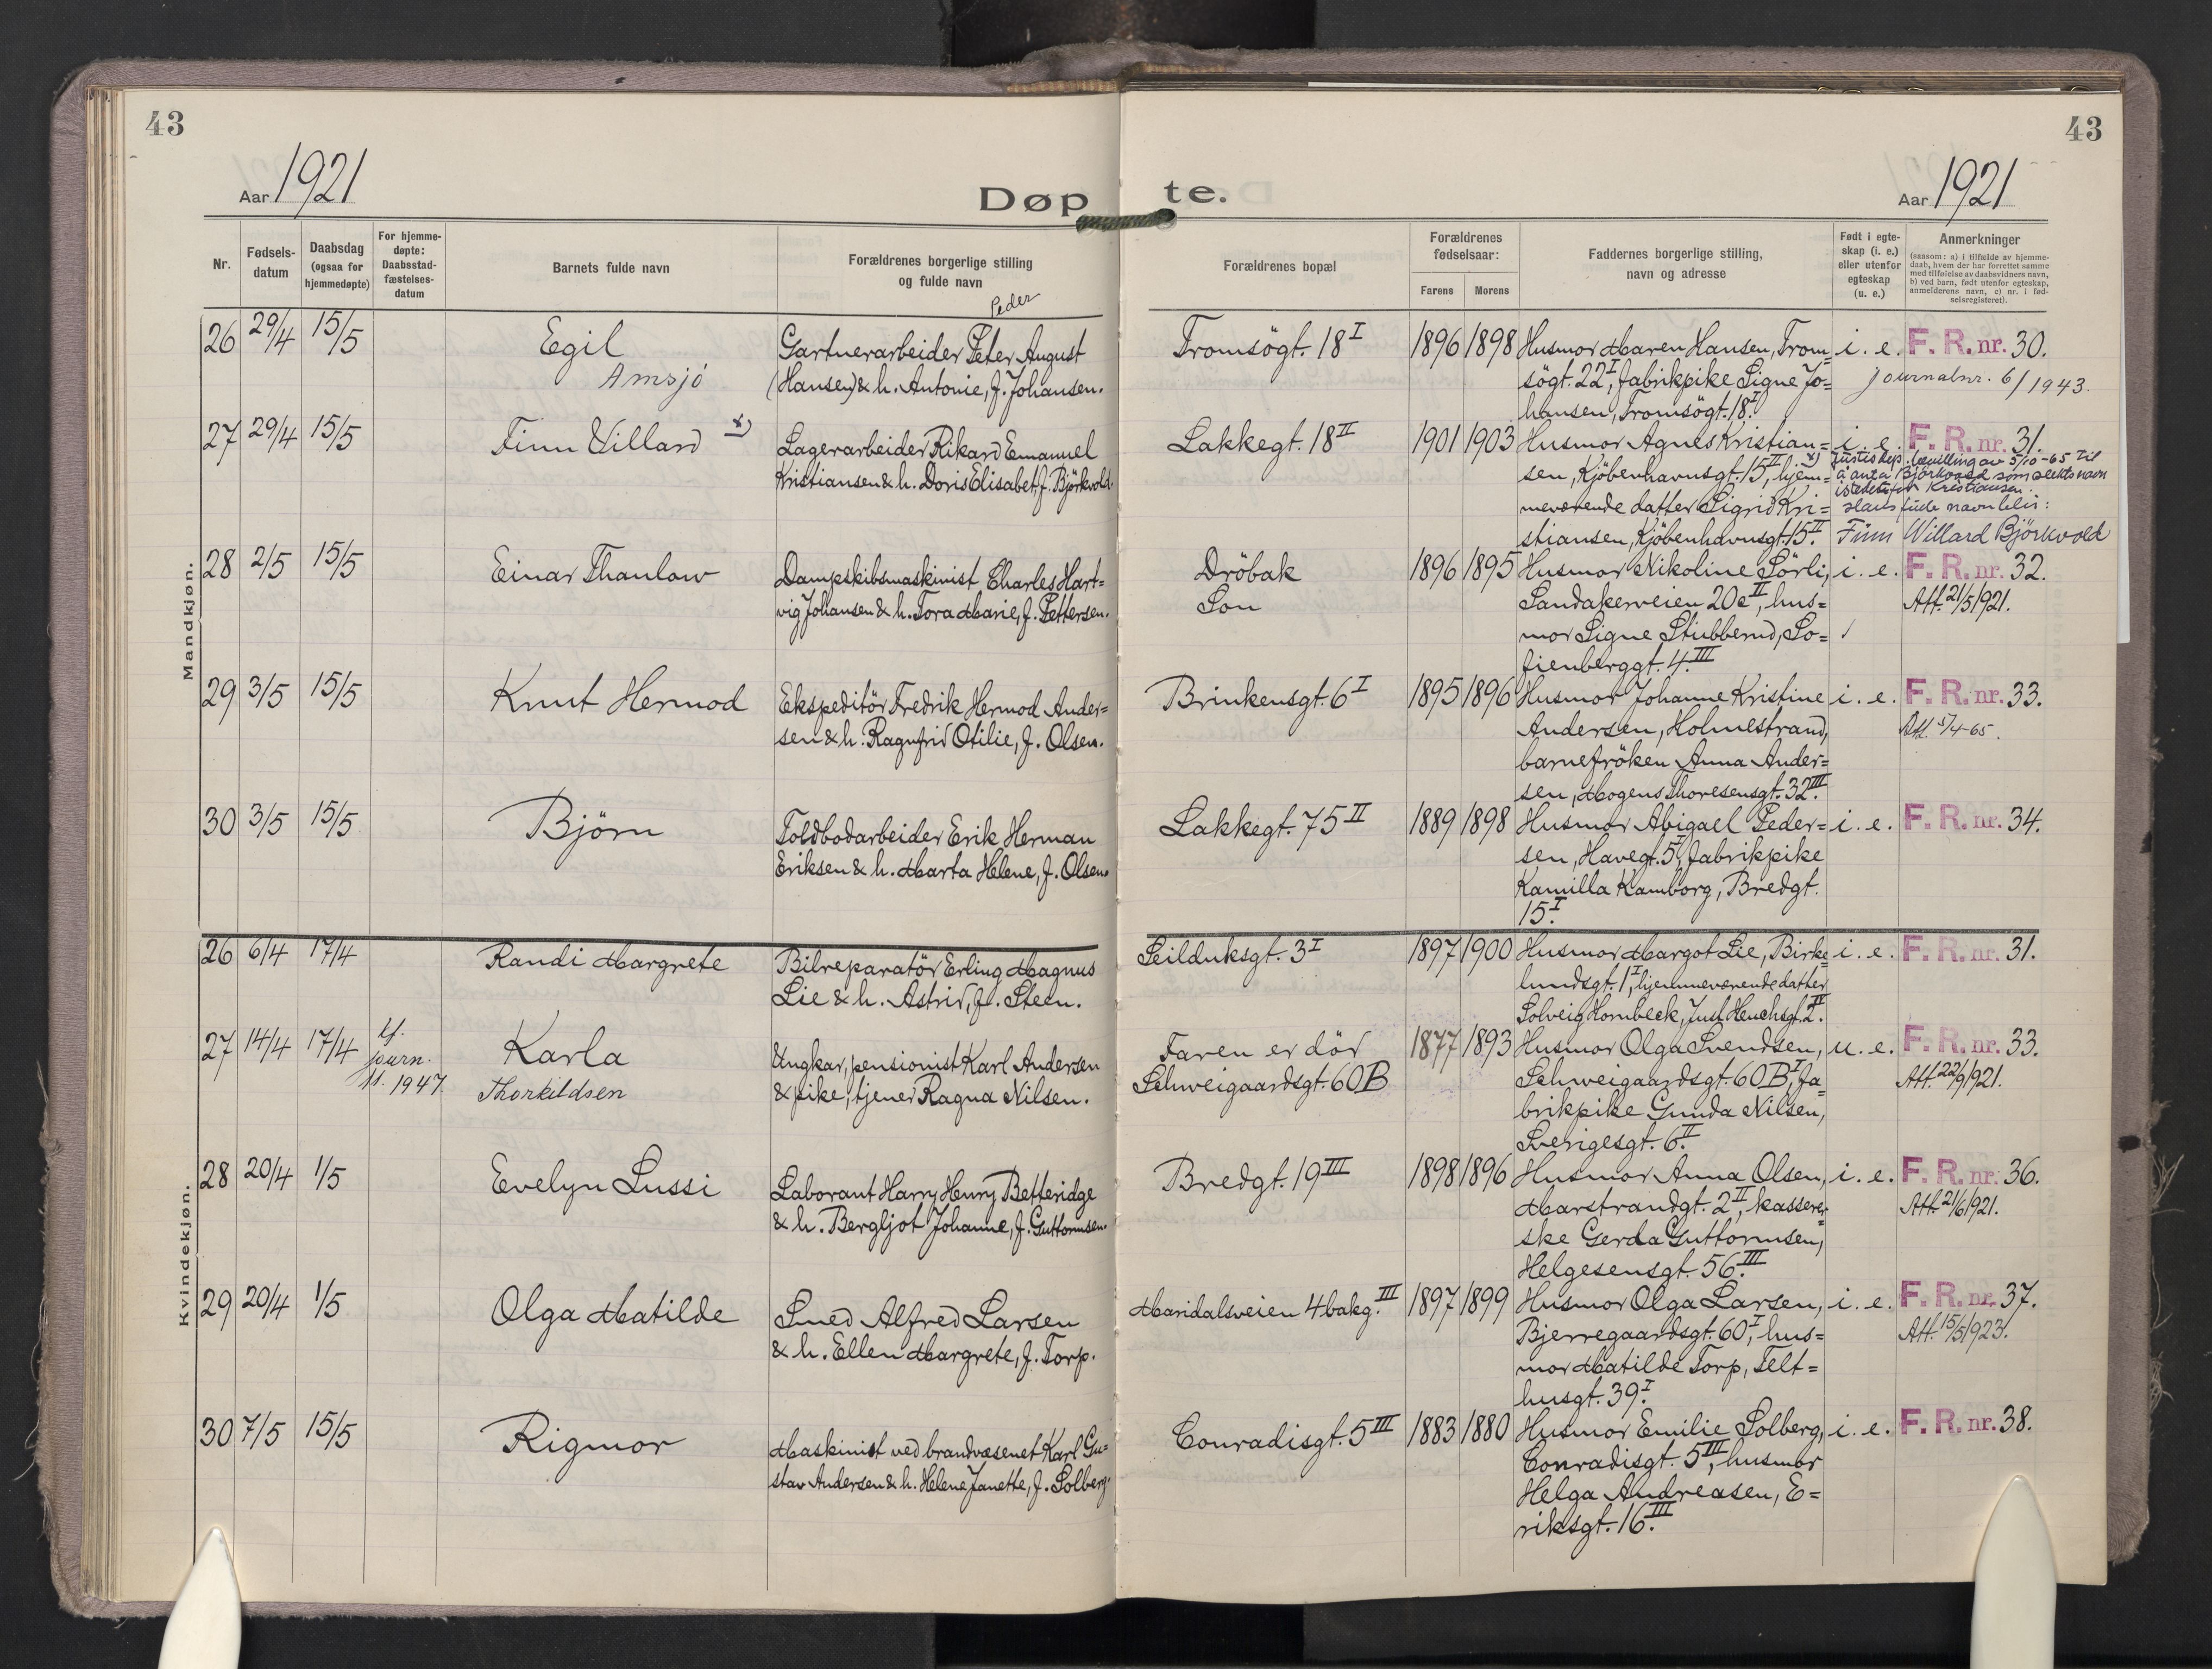 43
43
Aar 1921
Døpte.
Aar 1921
Nr.
Fødsels-
datum
Daabsdag
(ogsaa for
hjemmedøpte)
For hjemme-
døpte:
Daabsstad-
fæstelses-
datum
Barnets fulde navn
Forældrenes borgerlige stilling
og fulde navn
Forældrenes bopæl
Forældrenes
fødselsaar:
Farens
Morens
Faddernes borgerlige stilling,
navn og adresse
Født i egte-
skap (i. e.)
eller utenfor
egteskap
(u. e.)
Anmerkninger
(saasom: a) i tilfælde av hjemme-
daab, hvem der har forrettet samme
med tilføielse av daabsvidners navn,
b) ved barn, født utenfor egteskap,
anmelderens navn, c) nr. i fød-
selsregisteret).
Mandkjøn.
26 29/4 15/5
Egil
Amsjö
Peder
Gartnerarbeider Peter August
(Hansen) & h. Antonie, f. Johansen.
Tromsögt. 18 I
1896 1898
Husmor Maren Hansen, Trom=
sögt. 22 I, fabrikpike Signe Jo=
hansen, Tromsögt. 18 I.
i. e.
F. R. nr. 30.
Journalnr. 6/1943.
27 29/4 15/5
Finn Villard x)
Lagerarbeider Rikard Emanuel
Kristiansen & h. Doris Elisabet, f. Björkvold.
Lakkegt. 18 II
1901 1903
Husmor Agnes Kristian=
sen, Kjöbenhavnsgt. 15 II, hjem=
meværende datter Sigrid Kri=
stiansen, Kjöbenhavnsgt. 15 II.
i. e.
F. R. nr. 31.
x) Justisdep. bevilling av 5/10-65 til
å anta Björkvold som slektsnavn
istedetfor Kristiansen.
Hans fulde navn blir:
Finn Willard Björkvold
28 2/5 15/5
Einar Thaulow
Dampskibsmaskinist Charles Hart=
vig Johansen & h. Tora Marie, f. Pettersen.
Dröbak
Son
1896 1895
Husmor Nikoline Sörli,
Sandakerveien 20c II, hus=
mor Signe Stubberud, So=
fienberggt. 4 III.
i. e.
F. R. nr. 32.
Att. 21/5 1921.
29 3/5 15/5
Knut Hermod
Ekspeditör Fredrik Hermod Ander=
sen & h. Ragnfrid Otilie, f. Olsen.
Brinkensgt. 6 I
1895 1896
Husmor Johanne Kristine
Andersen, Holmestrand,
barnefröken Anna Ander=
sen, Mogens Thoresensgt. 32 III.
i. e.
F. R. nr. 33.
Att. 5/4-65.
30 3/5 15/5
Björn
Toldbodarbeider Erik Herman
Eriksen & h. Marta Helene, f. Olsen.
Lakkegt. 75 II
1889 1898
Husmor Abigael Peder=
sen, Havegt. 5 I, fabrikpike
Kamilla Kamborg, Bredgt.
15 I.
i. e.
F. R. nr. 34.
Kvindekjøn.
26 6/4 17/4
Randi Margrete
Bilreparatör Erling Magnus
Lie & h. Astrid, f. Steen.
Seilduksgt. 3 I
1897 1900
Husmor Margot Lie, Birke=
lundsgt. 1 I, hjemmeværende datter
Solveig Hornbeck, Just Heuchsgt. 2 II.
i. e.
F. R. nr. 31.
27 14/4 17/4
Cf.
journ.
11. 1947.
Karla
Thorkildsen
Ungkar, pensionist Karl Andersen
& pike, tjener Ragna Nilsen.
Faren er död
Schweigaardsgt. 60 B
1877 1893
Husmor Olga Svendsen,
Schweigaardsgt. 60 B I, fa=
brikpike Gunda Nilsen,
Sverigesgt. 6 II.
u. e.
F. R. nr. 33.
Att. 22/9 1921.
28 20/4 1/5
Evelyn Lussi
Laborant Harry Henry Betteridge
& h. Bergljot Johanne, f. Guttormsen.
Bredgt. 19 III
1898 1896
Husmor Anna Olsen,
Marstrandgt. 2 II, kasserer=
ske Gerda Guttormsen,
Helgesensgt. 56 III.
i. e.
F. R. nr. 36.
Att. 21/6 1921.
29 20/4 1/5
Olga Matilde
Smed Alfred Larsen
& h. Ellen Margrete, f. Torp.
Maridalsveien 4 bakg. III
1897 1899
Husmor Olga Larsen,
Bjerregaardsgt. 60 I, hus=
mor Matilde Torp, Telt=
husgt. 39 I.
i. e.
F. R. nr. 37.
Att. 15/5 1923.
30 7/5 15/5
Rigmor
Maskinist ved brandvæsenet Karl Gu=
stav Andersen & h. Helene Janette, f. Solberg.
Conradisgt. 5 III
1883 1880
Husmor Emilie Solberg,
Conradisgt. 5 III, husmor
Helga Andreasen, E=
riksgt. 16 III.
i. e.
F. R. nr. 38.